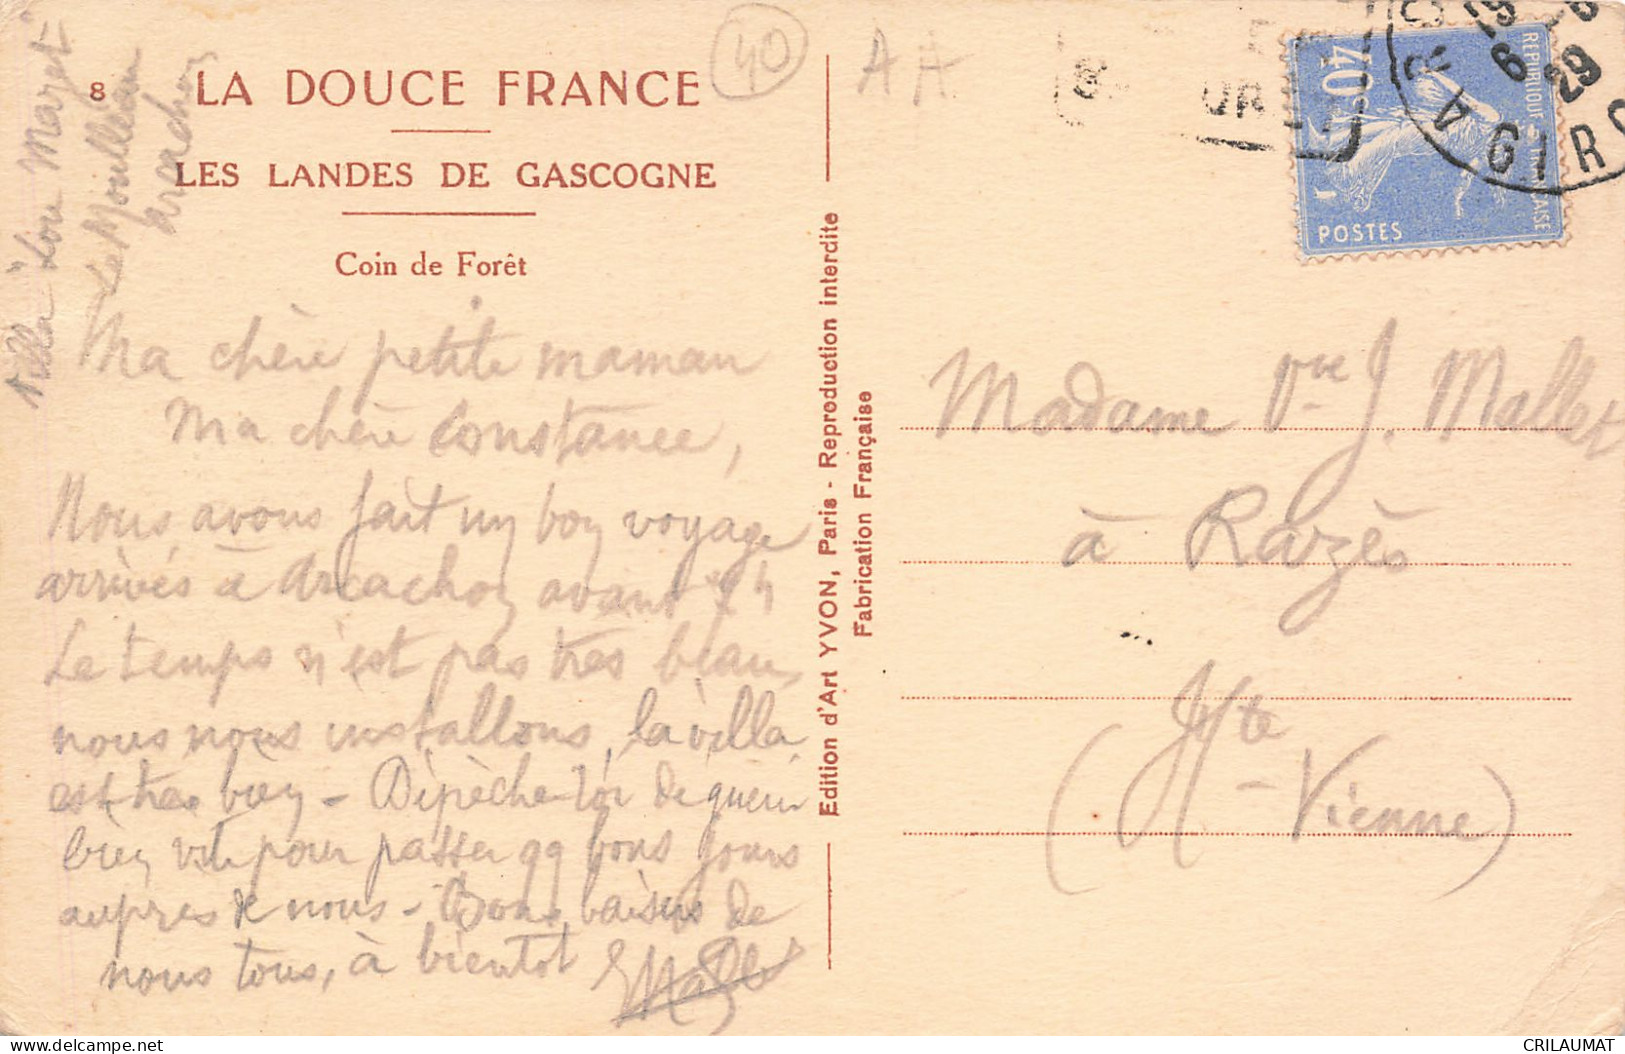 8
LA DOUCE FRANCE
LES LANDES DE GASCOGNE
Coin de Forêt
40
AA
Villa "Lou Mazet
Le Moulleau
Arcachon
Ma chère petite maman
Ma chère Constance,
Nous avons fait un bon voyage
arrivés à Arcachon avant
Le temps n'est pas très beau,
nous nous installons, la villa
est très bien - Dépêche-toi de guérir
bien vite pour passer qq bons jours
auprès de nous - Bons baisers de
nous tous, à bientôt
Edition d'Art YVON, Paris - Reproduction interdite
Fabrication Française
REPUBLIQUE FRANÇAISE
40c
POSTES
6
29
GIRO
Madame Vve J. Mallet
à Razès
(Hte - Vienne)
delcampe.net
CRILAUMAT